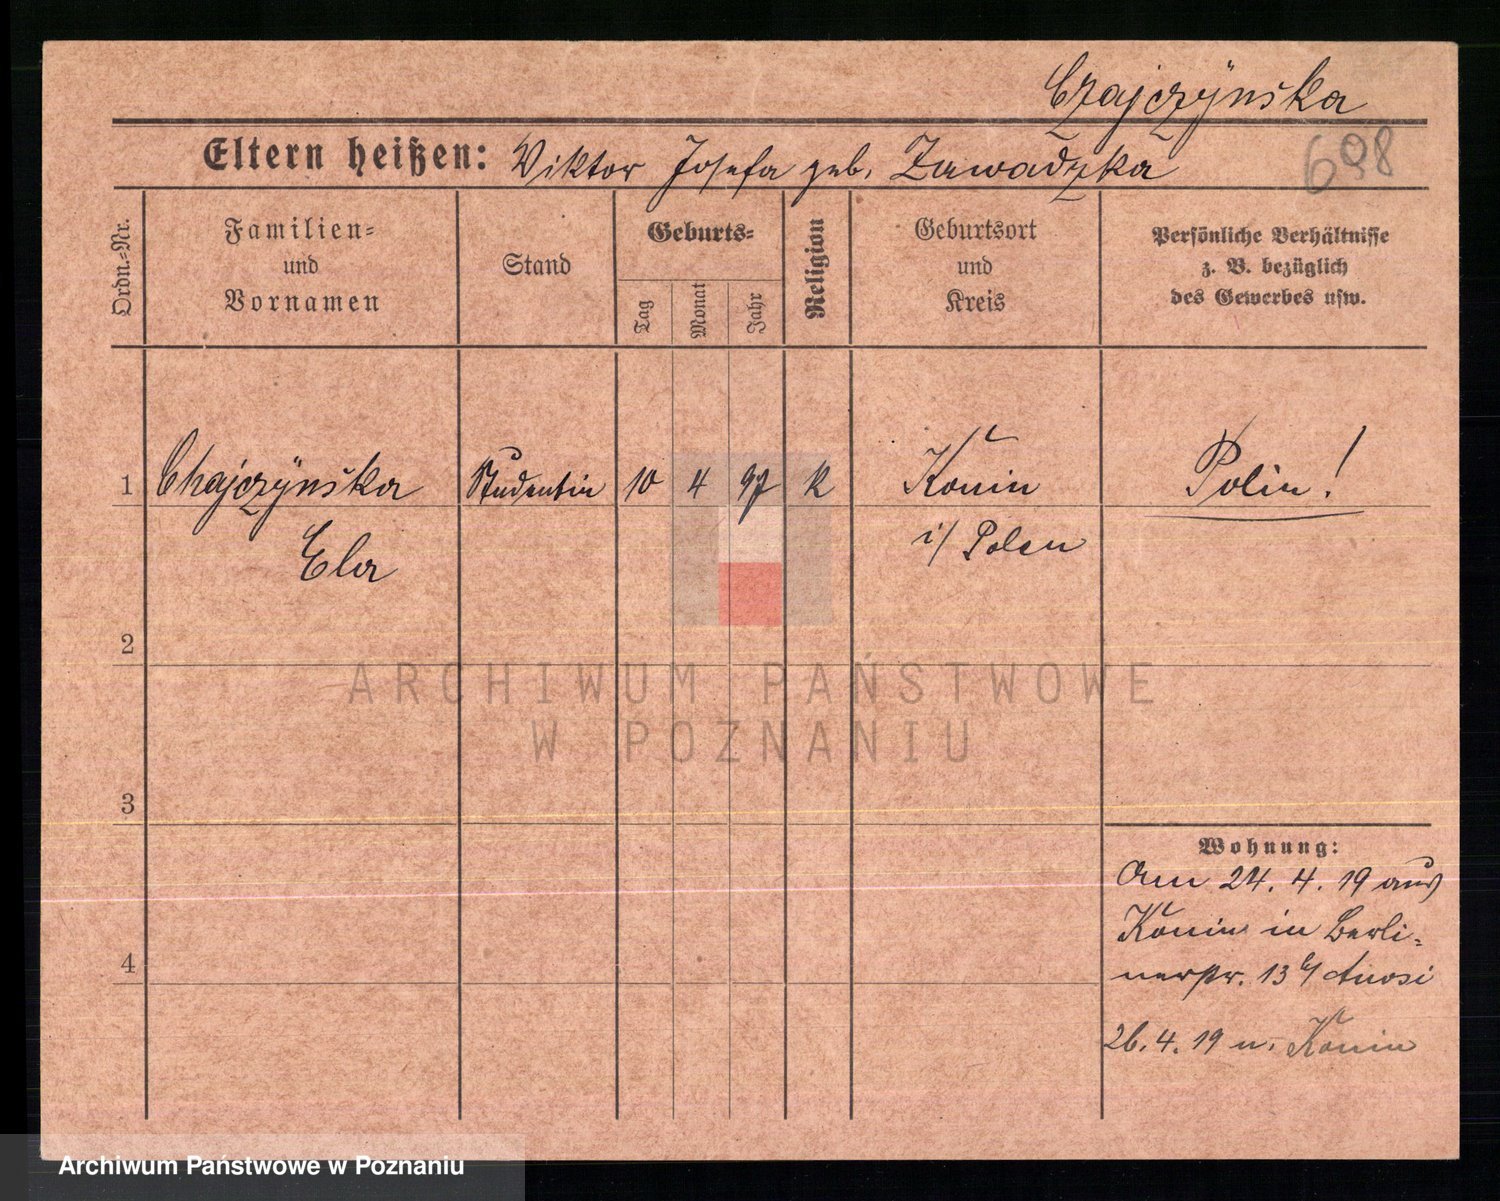 Czajczýnška
Eltern heißen: Viktor Josefa geb. Zawadzka
698
Ordn.-Nr.
Familien-
und
Vornamen
Stand
Geburts-
Tag
Monat
Jahr
Religion
Geburtsort
und
Kreis
Persönliche Verhältnisse
z. B. bezüglich
des Gewerbes usw.
1 Chajczÿnška Studentin 10 4 97 k Konin Polin!
Ela i/ Polen
2
ARCHIWUM PAŃSTWOWE
W POZNANIU
3
Wohnung:
Am 24. 4. 19 aus
Konin in Berli-
4
nerstr. 13 b/
26. 4. 19 n. Konin
Archiwum Państwowe w Poznaniu